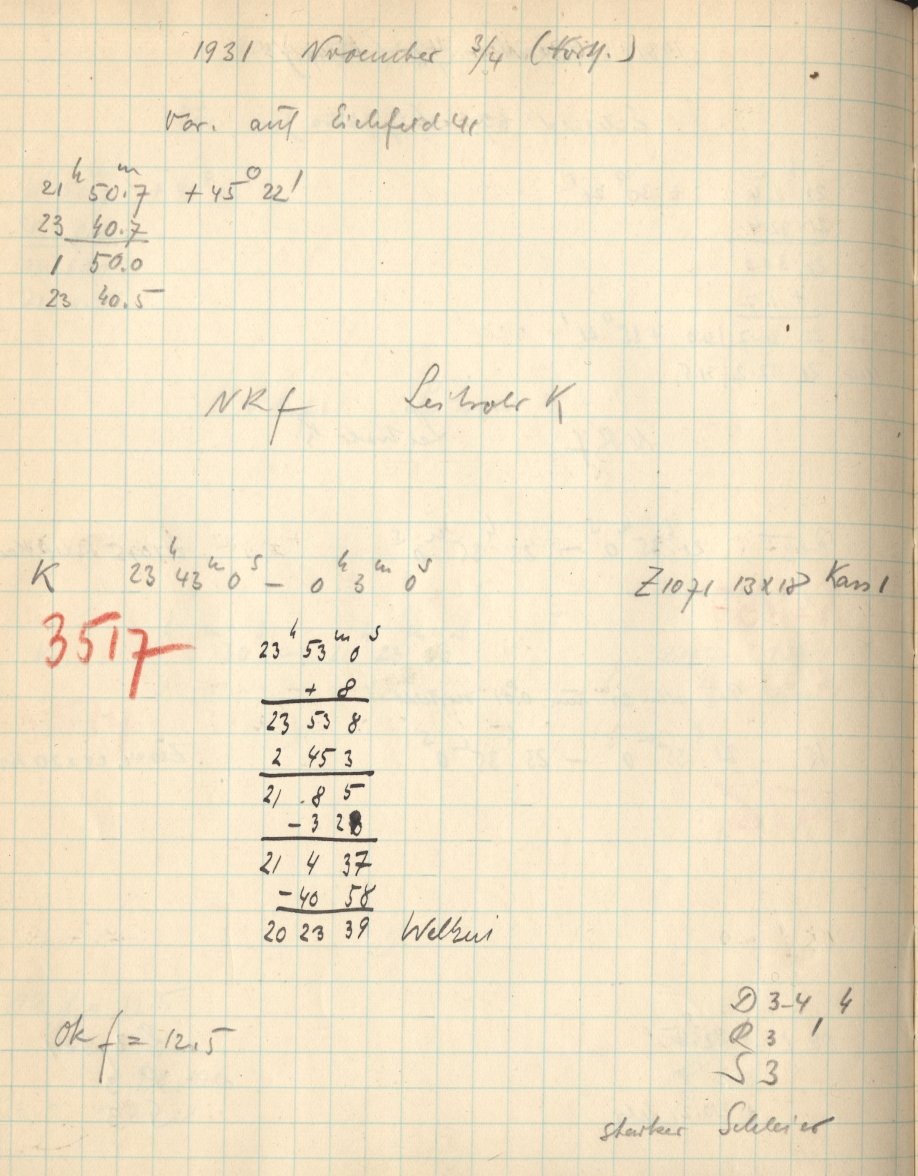 1931 November 3/4
Var. auf Eichfeld 41
21ʰ 50.7ᵐ +45° 22'
23 40.7
1 50.0
23 40.5
NRf Leitrohr K
K 23ʰ 43ᵐ 0ˢ – 0ʰ 3ᵐ 0ˢ Z1071 13x18 Kass 1
3517
23ʰ 53ᵐ 0ˢ
+ 8
23 53 8
2 45 3
21 8 5
- 3 28
21 4 37
- 40 58
20 23 39
D 3-4, 4
Ok f = 12.5
R 3
S 3
starker Schleier